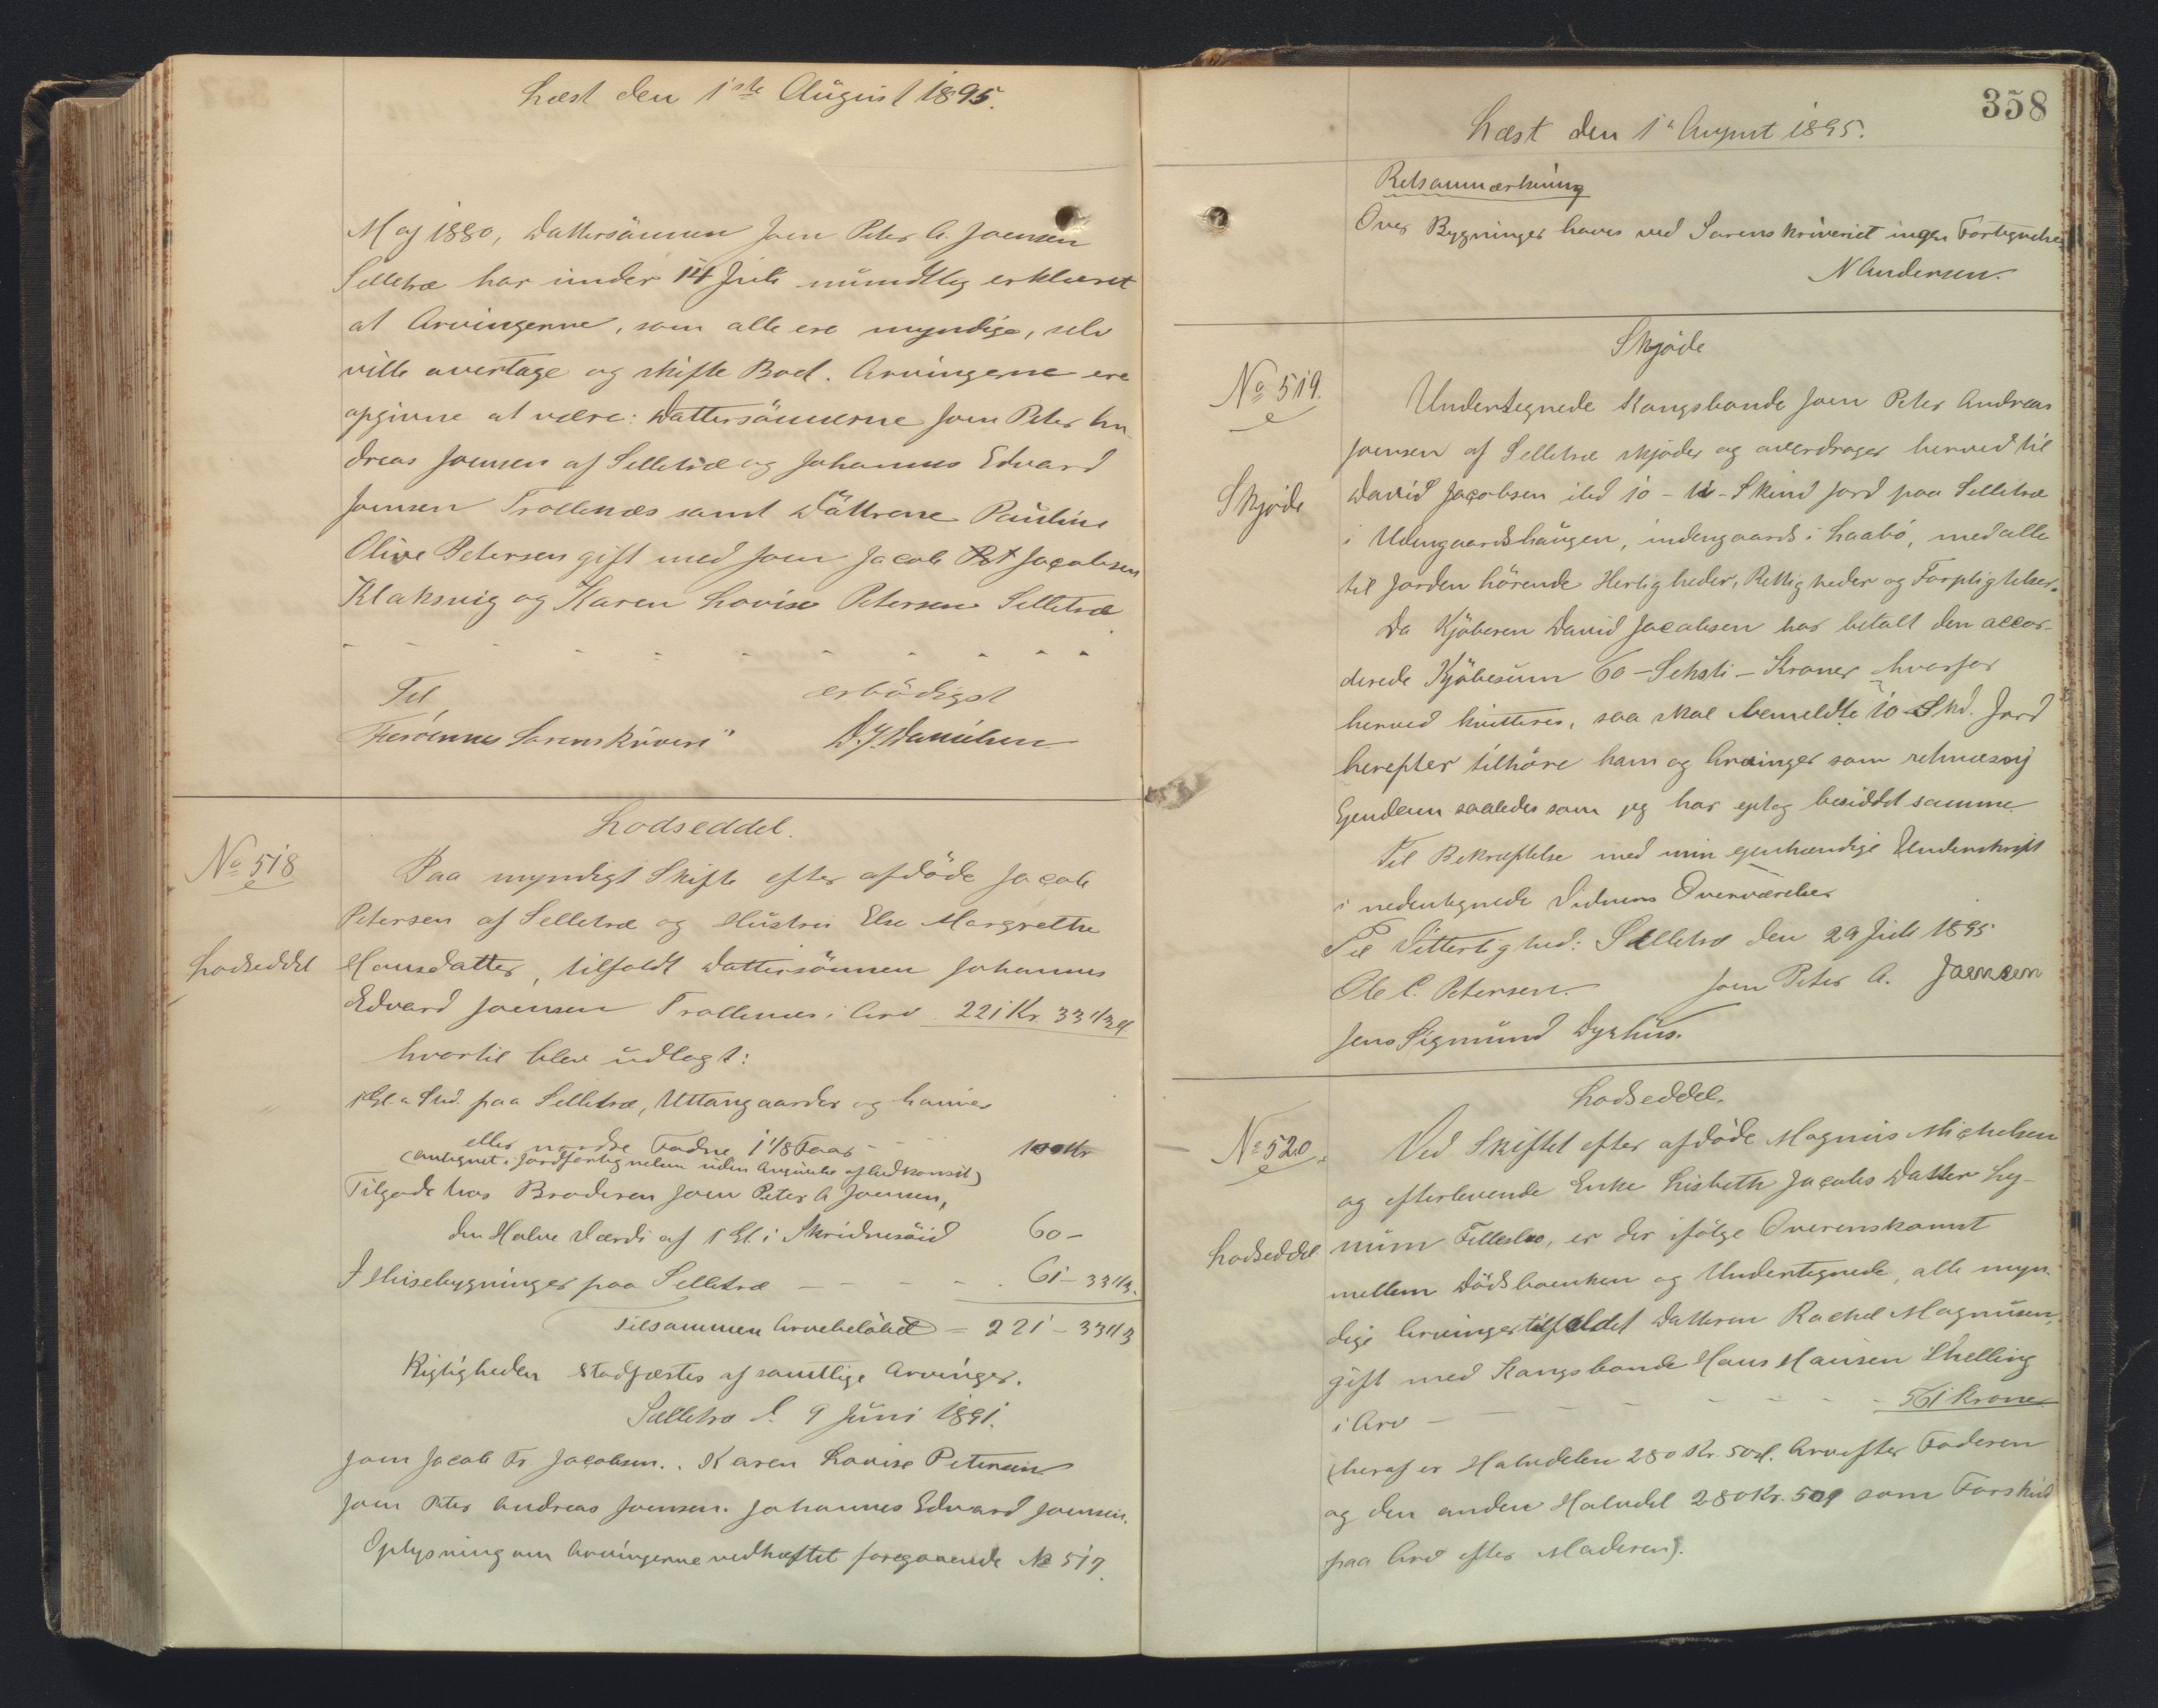 Læst den 1ste August 1895.
Maj 1880, Dattersönnen Joen Peter A. Joensen
Selletræ har under 14 Juli mundtlig erklæret
at Arvingerne, som alle ere myndige, selv
ville overtage og skifte Boet. Arvingerne ere
opgivne at være: Dattersönnerne Joen Peter An-
dreas Joensen af Selletræ og Johannes Edvard
Joensen Trollenæs samt Döttrene Pauline
Olive Petersen gift med Joen Jacob Jacobsen
Klaksvig og Karen Lovise Petersen Selletræ
Til erbödigst
Færöernes Sorenskriveri D. J. Danielsen
Lodseddel.
No 518
Paa myndigt Skifte efter afdöde Jacob
Petersen af Selletræ og Hustru Else Margrethe
Lodseddel
Hansdatter, tilfaldt Dattersönnen Johannes
Edvard Joensen Trollenes i Arv 221 Kr. 33 1/3 Ø
hvortil blev udlagt:
1 Gl. a Skd. paa Selletræ, Uttangaardes og
eller nordre Fodne 1 1/8 Faar - 100 Kr
(antegnet i Jordfortegnelsen uden Angivelse af Adkomst)
Tilgode hos Broderen Joen Peter A Joensen,
den Halve Værdi af 1 Gl. i Skridnesöid 60 -
I Husebygninger paa Selletræ - - - - 61 - 33 1/3.
Tilsammen Arvebelöbet = 221 - 33 1/3
Rigtigheden stadfæstes af samtlige Arvinger.
Sælletræ d. 9 Juni 1891.
Joen Jacob Fr. Jacobsen. Karen Lovise Petersen
Joen Peter Andreas Joensen. Johannes Edvard Joensen.
Oplysning om Arvingerne vedhæftet foregaaende No 517.
358
Læst den 1ste August 1895.
Retsanmærkning
Over Bygninger haves ved Sorenskriveriet ingen Fortegnelse
N Andersen.
Skjöde
No 519.
Undertegnede Kongsbonde Joen Peter Andreas
Joensen af Selletræ skjöder og overdrager herved til
Skjöde
David Jacobsen ibd 10 - ti - Skind Jord paa Selletræ
i Udengaardshaugen, indengaards i Laabö, med alle
til Jorden hörende Herligheder, Rettigheder og Forpligtelser.
Da Kjöberen David Jacobsen har betalt den accor-
derede Kjöbesum 60 - Seksti - Kroner hvorfor
herved kvitteres, saa skal bemeldte 10 Skd. Jord
herefter tilhöre ham og Arvinger som retmæssig
Ejendom saaledes som jeg har ejet og besiddet samme
Til Bekræftelse med min egenhændige Underskrift
i nedentegnede Vidners Overværelse
Til Vitterlighed: Selletræ den 29 Juli 1895
Ole C. Petersen. Joen Peter A. Joensen
Jens Sigmund Dyrhus.
Lodseddel.
No 520.
Ved Skiftet efter afdöde Magnus Michelsen
og efterlevende Enke Lisbeth Jacobs Datter Ly-
Lodseddel.
num Tellesbro, er der ifölge Overenskomst
mellem Dödsboenken og Undertegnede, alle myn-
dige Arvinger tilfaldet Datteren Rachel Magnusen,
gift med Kongsbonde Hans Hansen Skelling
i Arv - - - - - - 561 Kroner
(heraf er Halvdelen 280 Kr. 50 Ø. Arv efter Faderen
og den anden Halvdel 280 Kr. 50 Ø som Forskud
paa Arv efter Moderen).